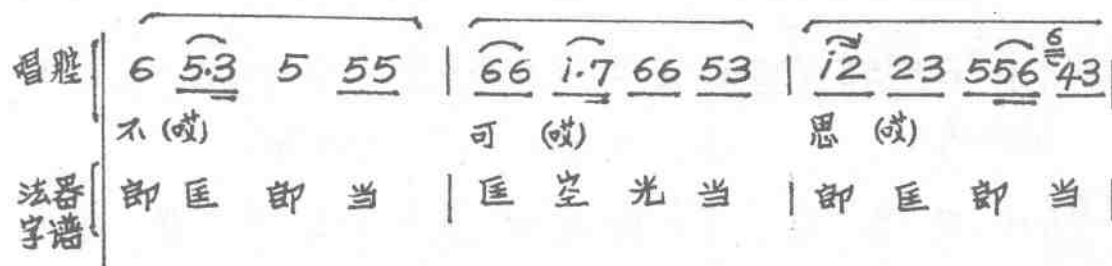 6
唱腔 6 5·3 5 55 | 66 i·7 66 53 | i2 23 556 43 |
不 (哎) 可 (哎) 思 (哎)
法器字谱 郎 匡 郎 当 | 匡 空 光 当 | 郎 匡 郎 当 |